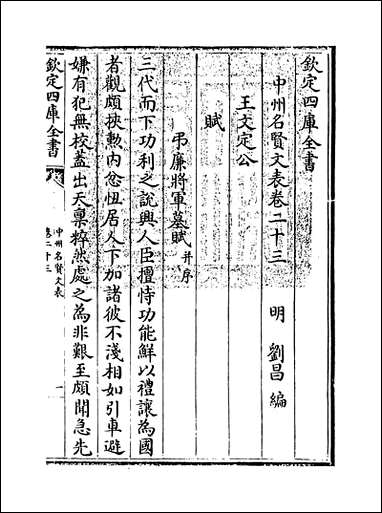 欽定四庫全書
中州名賢文表卷二十三
明 劉昌 編
王文定公
賦
弔廉將軍墓賦并序
三代而下功利之說興人臣擅恃功能鮮以禮讓為國
者觀頗挾勲内忿忸居人下加諸彼不淺相如引車避
嫌有犯無校蓋出天稟粹然處之為非艱至頗聞急先
欽定四庫全書
中州名賢文表
卷二十三
一